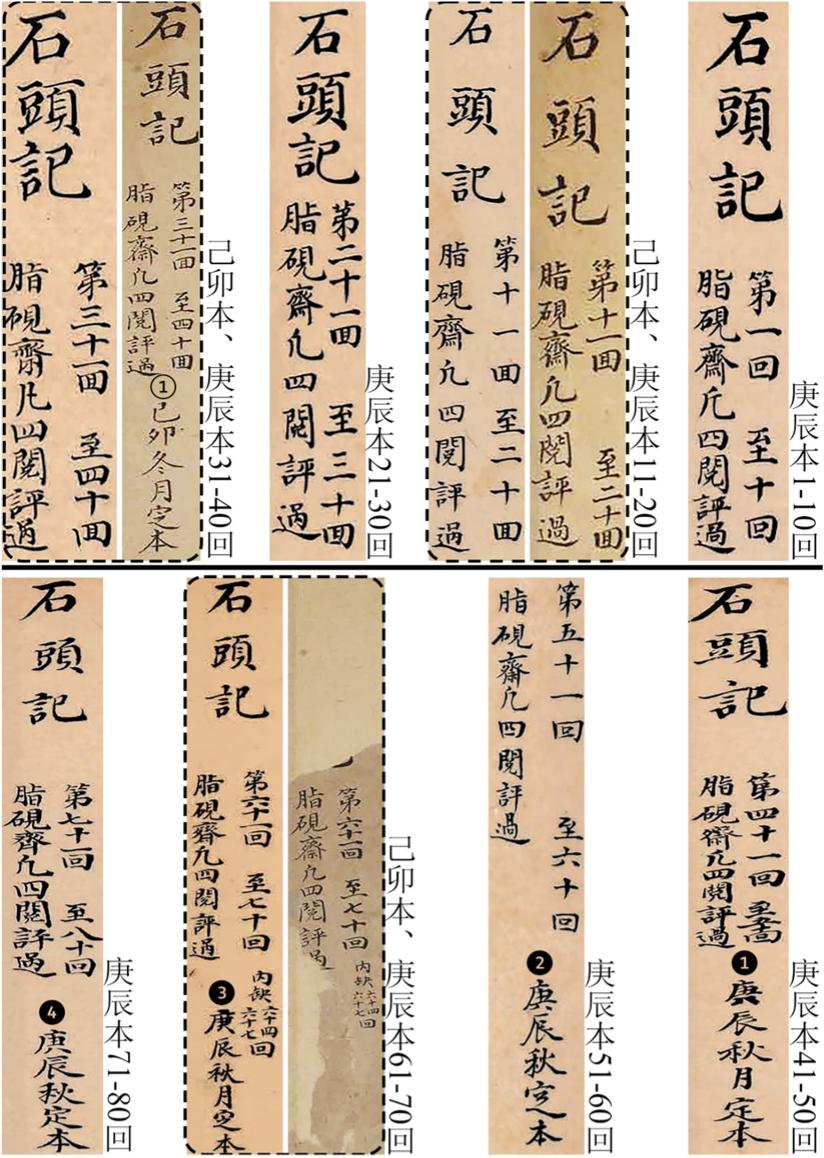 石頭記
第一回 至十回
脂硯齋凡四閱評過
庚辰本1-10回
石頭記
第十一回 至二十回
脂硯齋凡四閱評過
石頭記
第十一回至二十回
脂硯齋凡四閱評過
己卯本、庚辰本11-20回
石頭記
第二十一回 至三十回
脂硯齋凡四閱評過
庚辰本21-30回
石頭記
第三十一回 至四十回
脂硯齋凡四閱評過
①己卯冬月定本
石頭記
第三十一回 至四十回
脂硯齋凡四閱評過
己卯本、庚辰本31-40回
石頭記
第四十一回 至五十回
脂硯齋凡四閱評過
❶庚辰秋月定本
庚辰本41-50回
第五十一回 至六十回
脂硯齋凡四閱評過
❷庚辰秋定本
庚辰本51-60回
第六十一回 至七十回
內缺六十四六十七回
脂硯齋凡四閱評過
石頭記
第六十一回 至七十回
內缺六十四六十七回
脂硯齋凡四閱評過
❸庚辰秋月定本
己卯本、庚辰本61-70回
石頭記
第七十一回 至八十回
脂硯齋凡四閱評過
❹庚辰秋定本
庚辰本71-80回